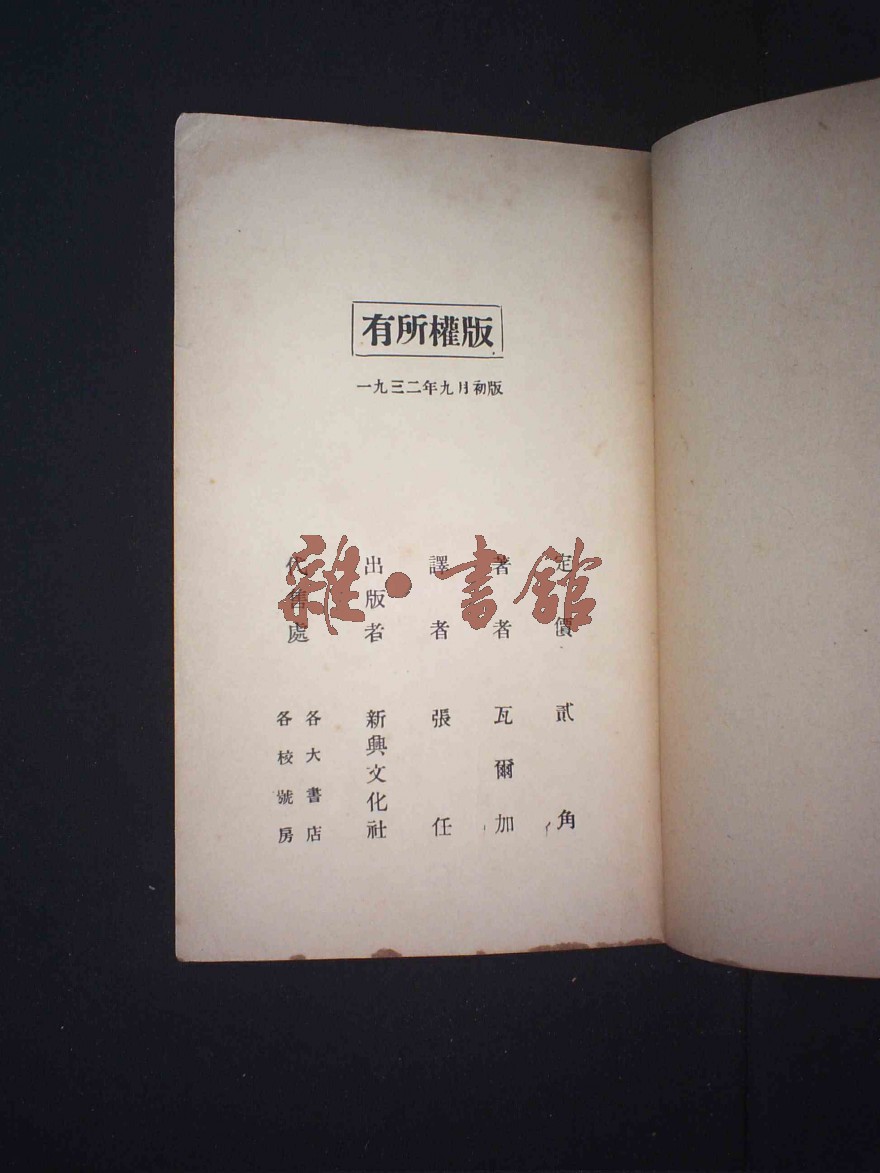 有所權版
一九三二年九月初版
定價 貳角
著者 瓦爾加
譯者 張任
出版者 新興文化社
代售處 各大書店
各校號房
雜·書館